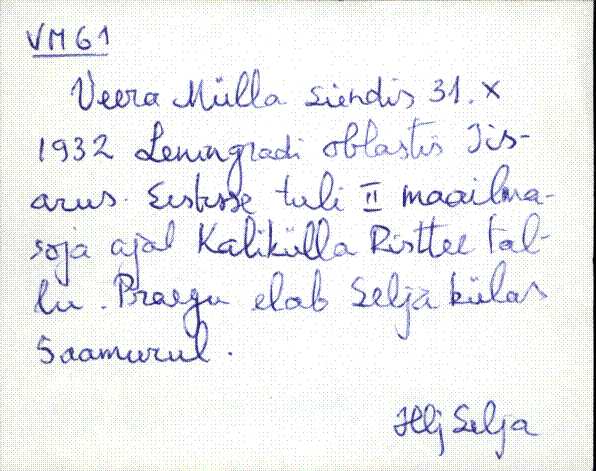 VM 61
Veera Mülla siendis 31. X
1932 Leningradi oblastis Jis-
arus. Eestisse tuli II maailma-
soja ajal Kalikülla Risttee tal-
lu. Praegu elab Selja külas
Saamurul.
Hlj Selja